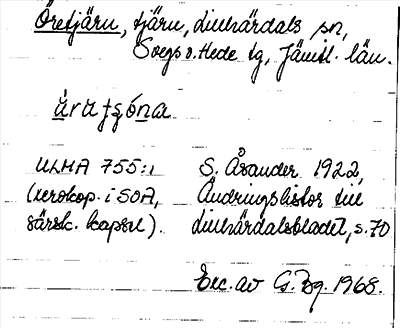 Öretjärn, tjärn, Linsärdals sn,
Svegs o. Hede tg, Jämtl. län.
ùrutsóna
ULMA 755:1 S. Åsander 1922,
(xerokop. i SOA, Ändringslistor till
särsk. kapsel). Linsärdalsbladet, s. 70
Exc. av G. Bg. 1968.